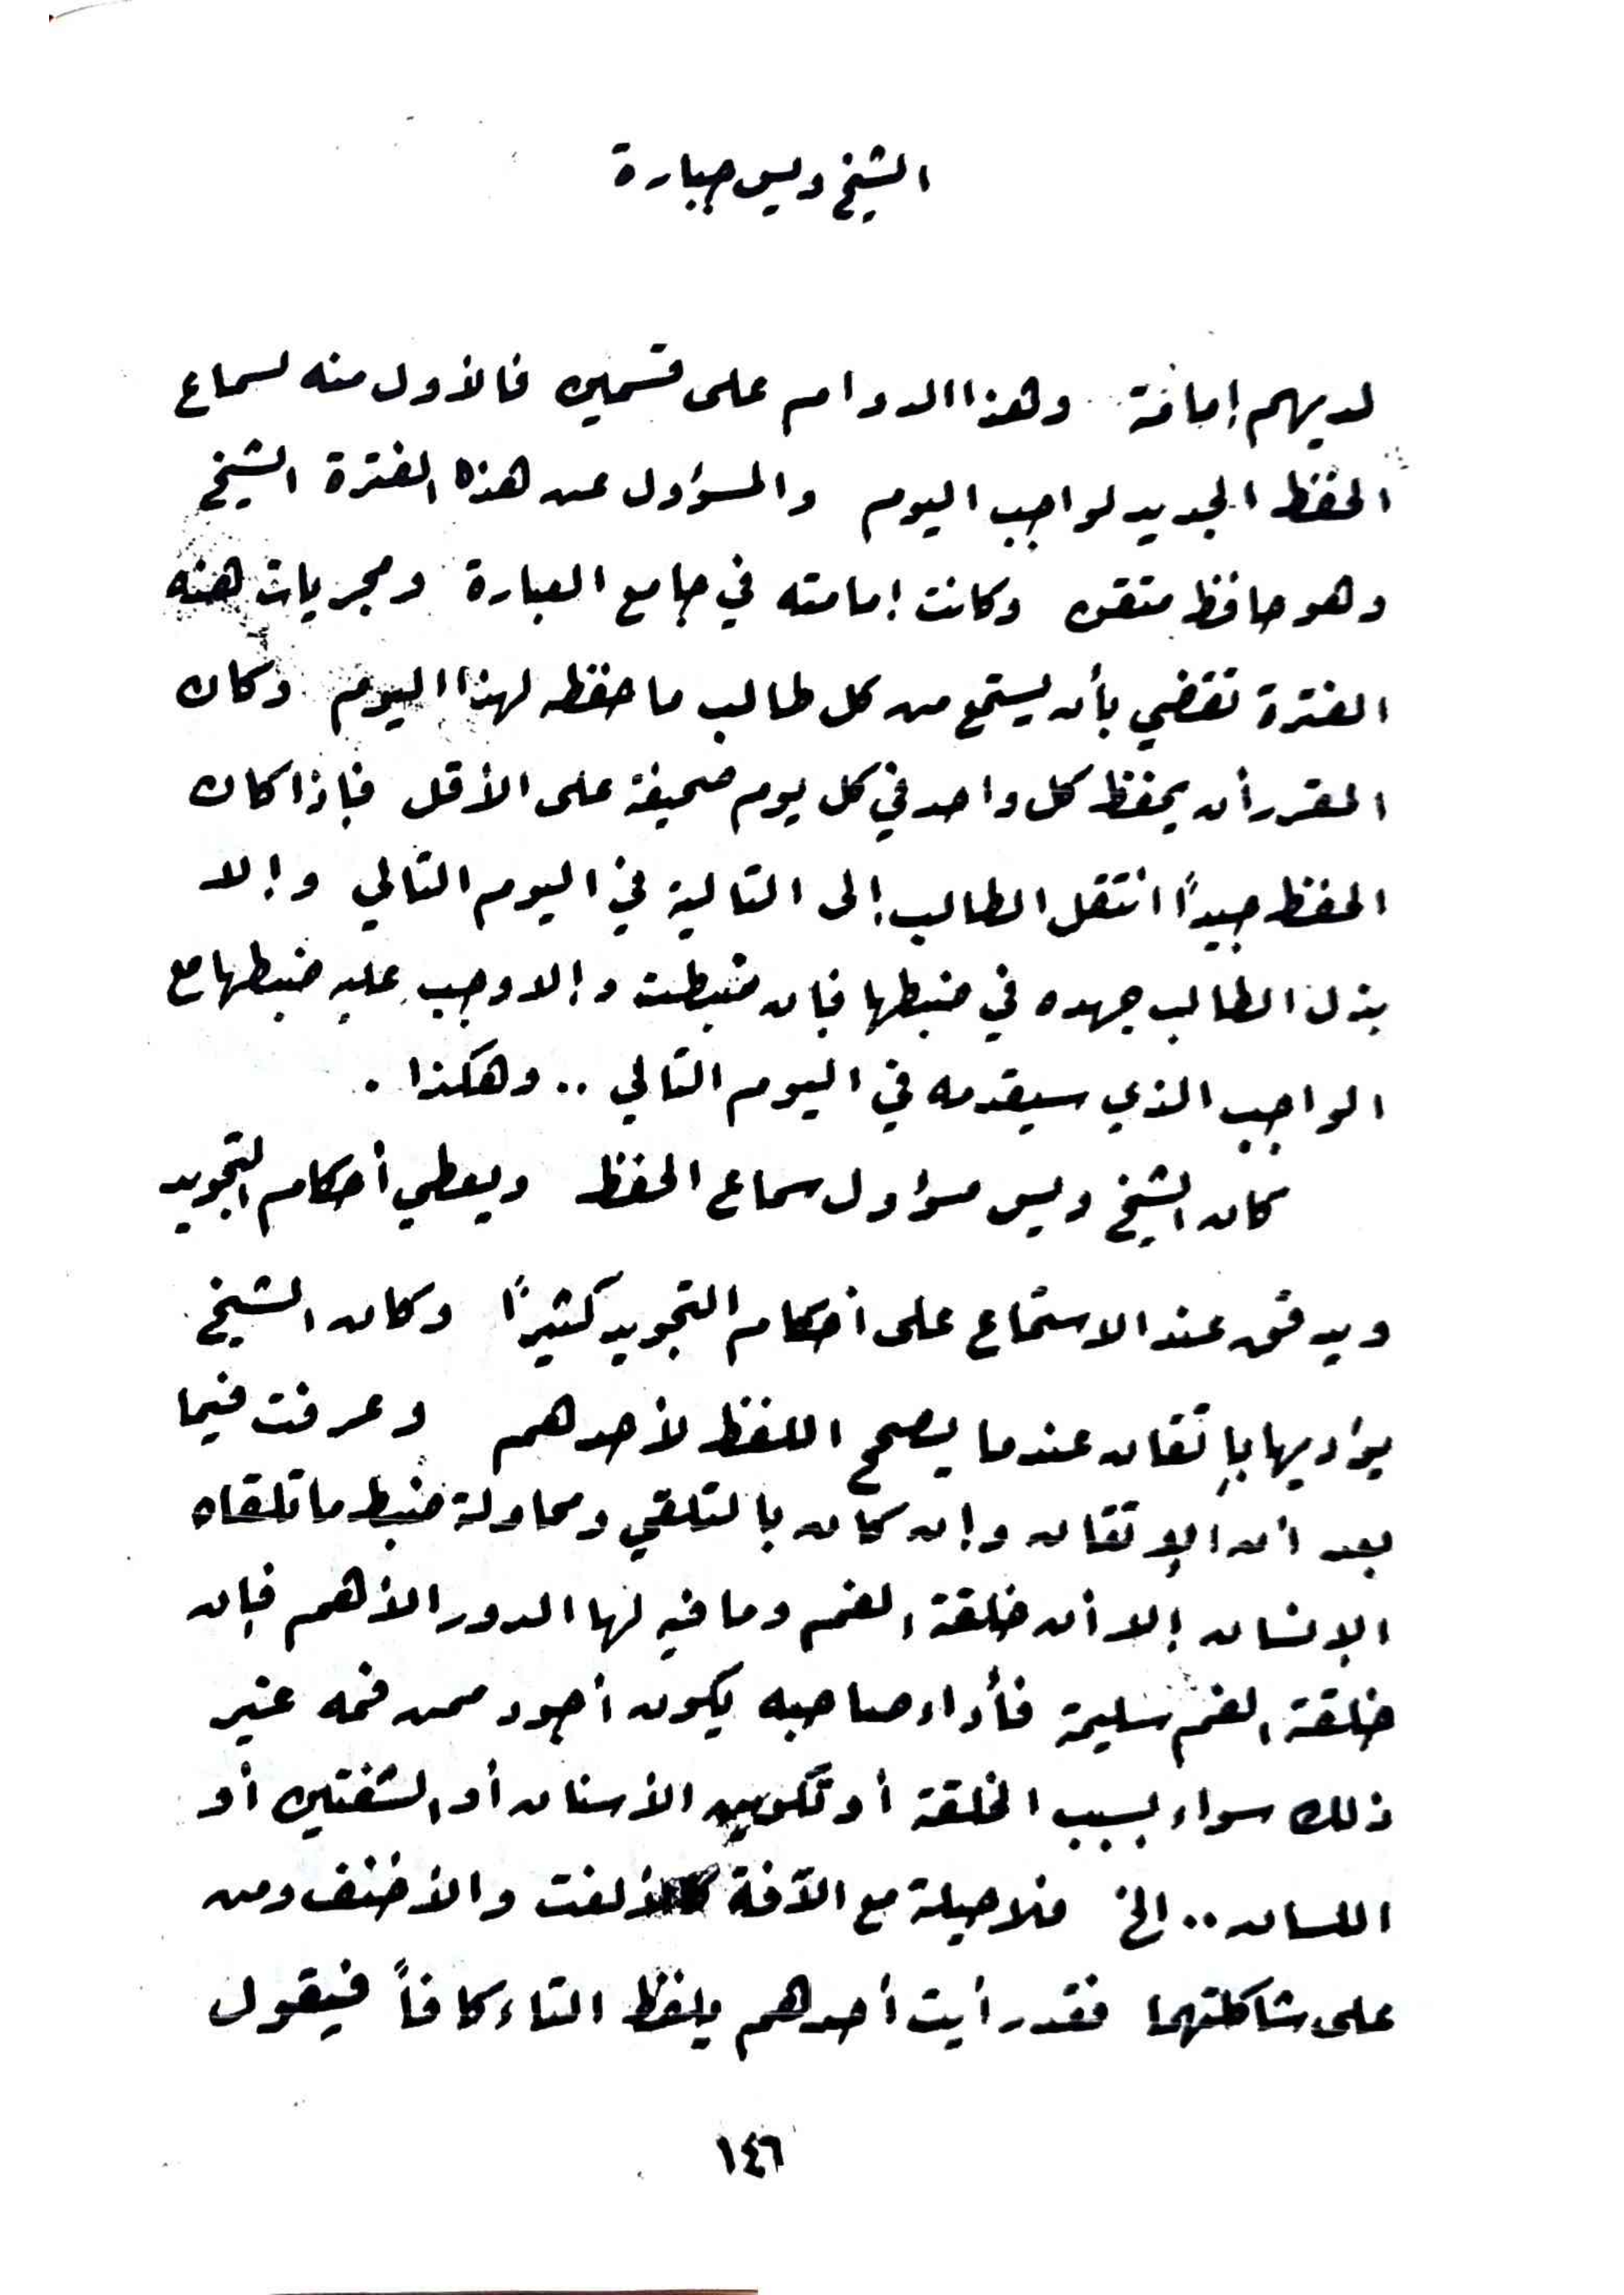 الشيخ ويس جبارة
لديهم إمامة وهذا الدوام على قسمين فالأول منه لسماع
الحفظ الجديد لواجب اليوم والمسؤول عن هذه الفترة الشيخ
وهو حافظ متقن وكانت إمامته في جامع العبارة ومجريات هذه
الفترة تقضي بأن يستمع من كل طالب ما حفظه لهذا اليوم وكان
المقرر أن يحفظ كل واحد في كل يوم صحيفة على الأقل فإذا كان
الحفظ جيداً انتقل الطالب إلى التالية في اليوم التالي وإلا
بذل الطالب جهده في ضبطها فإن ضبطت وإلا وجب عليه ضبطها مع
الواجب الذي سيقدمه في اليوم التالي .. وهكذا .
كان الشيخ ويس مسؤول سماع الحفظ ويعطي أحكام التجويد
ويدقق عند الاستماع على أحكام التجويد كثيراً وكان الشيخ
يؤديها بإتقان عندما يصحح اللفظ لأحدهم وعرفت فيما
بعد أن الإتقان وإن كان بالتلقي ومحاولة ضبط ما تلقاه
الإنسان إلا أن خلقة الفم وما فيه لها الدور الأهم فإن
خلقة الفم سليمة فأداء صاحبه يكون أجود ممن فمه غير
ذلك سواء بسبب الخلقة أو تكوين الأسنان أو الشفتين أو
اللسان .. الخ فلا حيلة مع الآفة كالألغت والأخنف ومن
على شاكلتهما فقد رأيت أحدهم يلفظ التاء كافاً فيقول
١٤٦